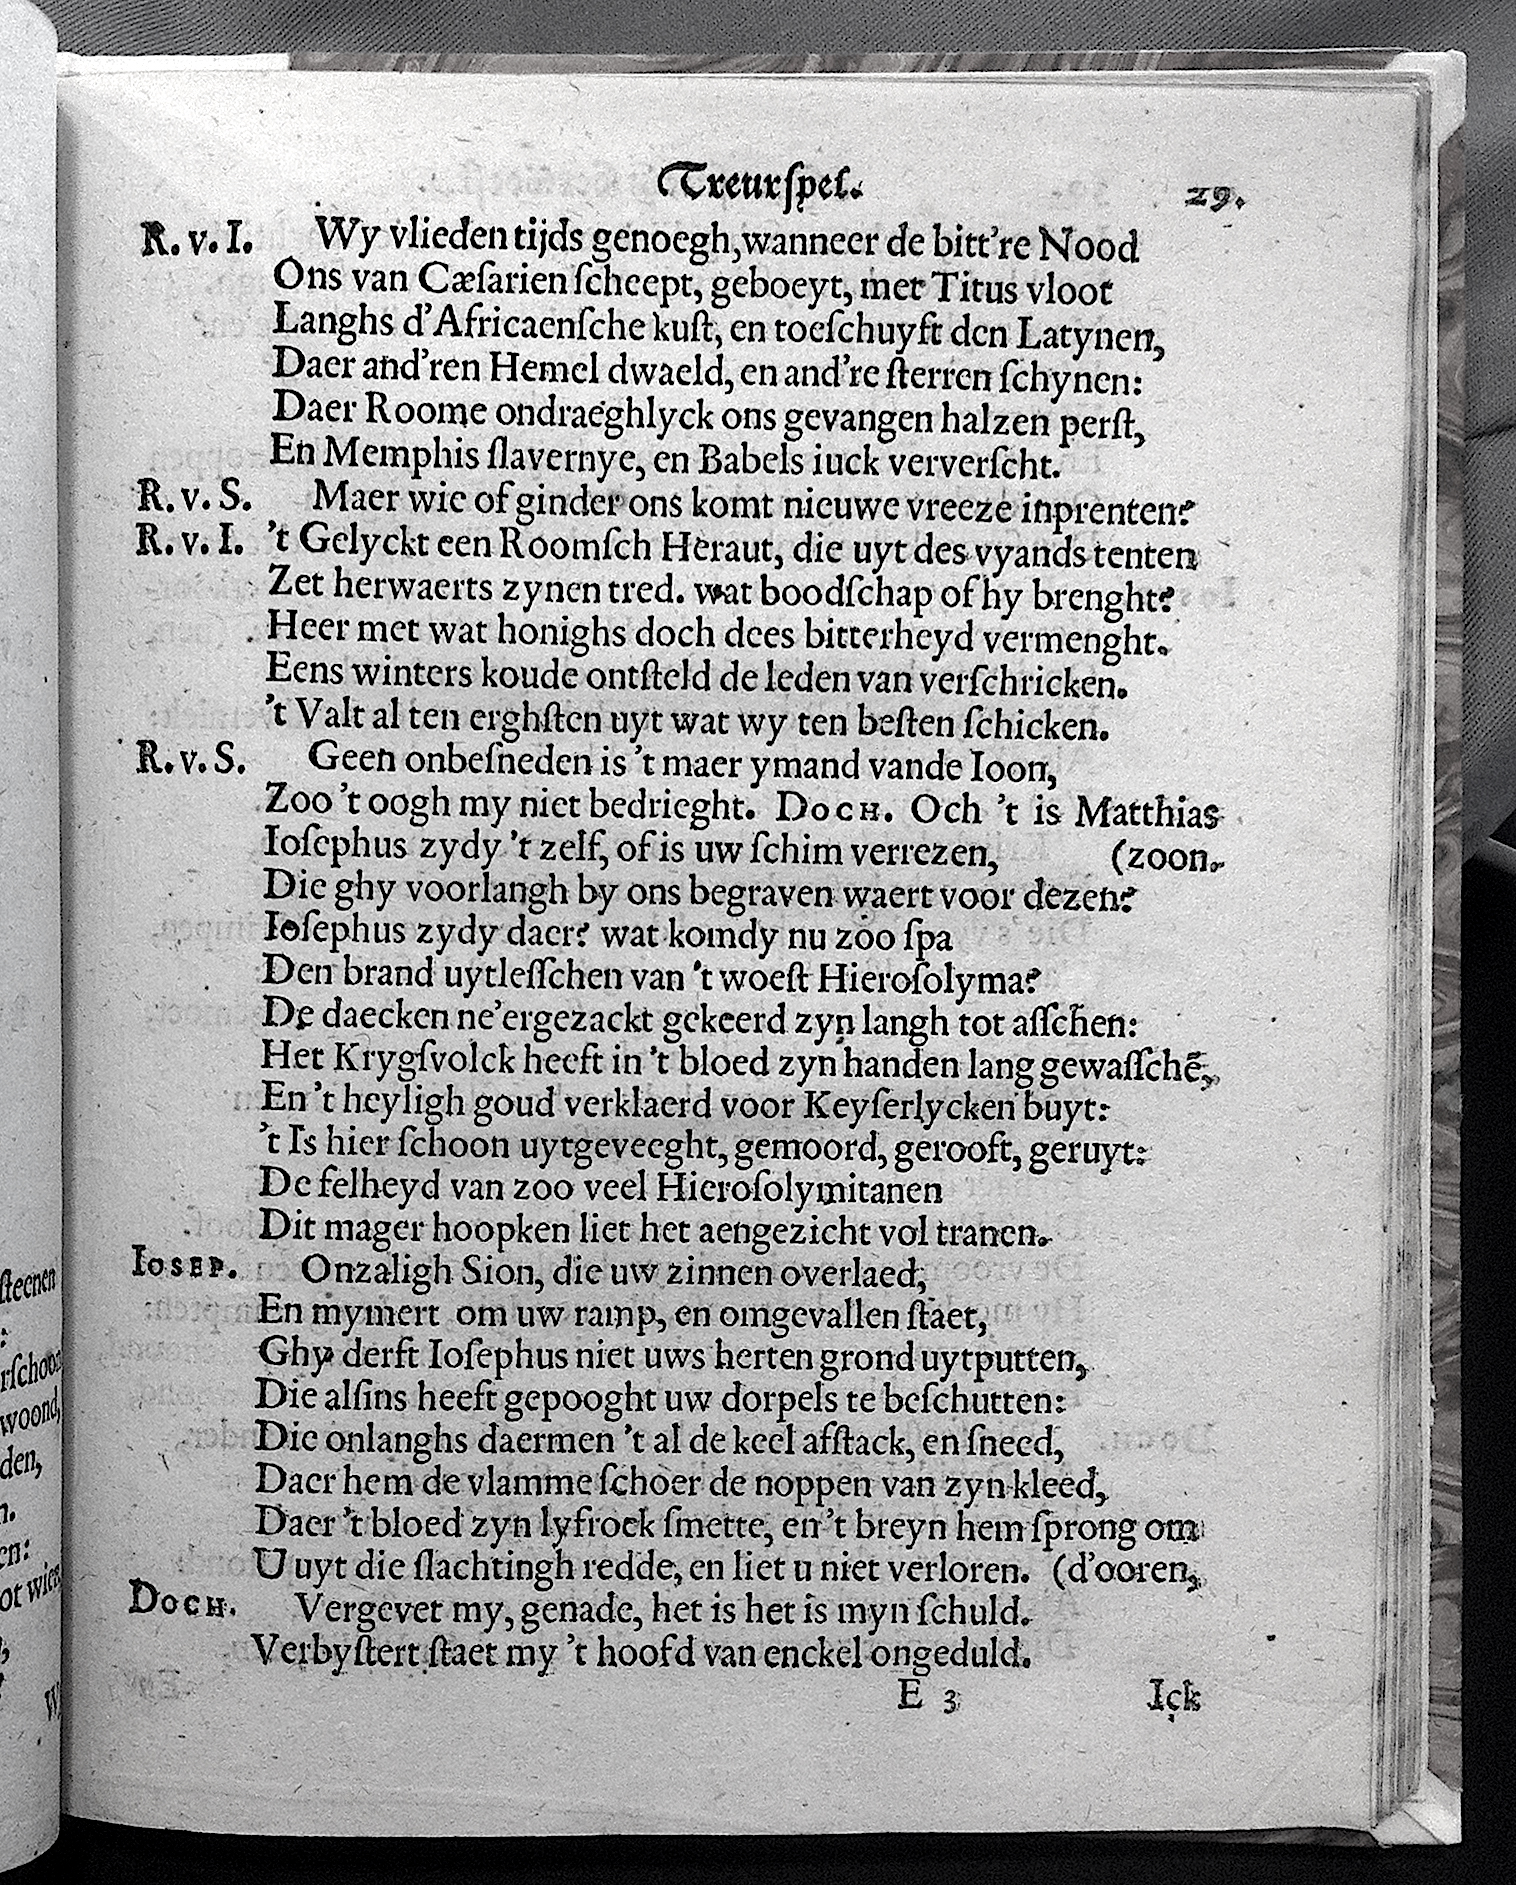 Treurſpel. 29.
R. v. I. Wy vlieden tijds genoegh, wanneer de bitt’re Nood
Ons van Cæſarien ſcheept, geboeyt, met Titus vloot
Langhs d’Africaenſche kuſt, en toeſchuyft den Latynen,
Daer and’ren Hemel dwaeld, en and’re ſterren ſchynen:
Daer Roome ondraeghlyck ons gevangen halzen perſt,
En Memphis ſlavernye, en Babels iuck ververſcht.
R. v. S. Maer wie of ginder ons komt nieuwe vreeze inprenten?
R. v. I. ’t Gelyckt een Roomſch Heraut, die uyt des vyands tenten
Zet herwaerts zynen tred. wat boodſchap of hy brenght?
Heer met wat honighs doch dees bitterheyd vermenght.
Eens winters koude ontſteld de leden van verſchricken.
’t Valt al ten erghſten uyt wat wy ten beſten ſchicken.
R. v. S. Geen onbeſneden is ’t maer ymand vande Ioon,
Zoo ’t oogh my niet bedrieght. DOCH. Och ’t is Matthias
Ioſephus zydy ’t zelf, of is uw ſchim verrezen, (zoon.
Die ghy voorlangh by ons begraven waert voor dezen?
Ioſephus zydy daer? wat komdy nu zoo ſpa
Den brand uytleſſchen van ’t woeſt Hieroſolyma?
De daecken ne’ergezackt gekeerd zyn langh tot aſſchen:
Het Krygſvolck heeft in ’t bloed zyn handen lang gewaſſchē,
En ’t heyligh goud verklaerd voor Keyſerlycken buyt:
’t Is hier ſchoon uytgeveeght, gemoord, gerooft, geruyt:
De felheyd van zoo veel Hieroſolymitanen
Dit mager hoopken liet het aengezicht vol tranen.
IOSEP. Onzaligh Sion, die uw zinnen overlaed,
En mymert om uw ramp, en omgevallen ſtaet,
Ghy derft Ioſephus niet uws herten grond uytputten,
Die alſins heeft gepooght uw dorpels te beſchutten:
Die onlanghs daermen ’t al de keel afſtack, en ſneed,
Daer hem de vlamme ſchoer de noppen van zyn kleed,
Daer ’t bloed zyn lyfrock ſmette, en ’t breyn hem ſprong om
U uyt die ſlachtingh redde, en liet u niet verloren. (d’ooren,
DOCH. Vergevet my, genade, het is het is myn ſchuld.
Verbyſtert ſtaet my ’t hoofd van enckel ongeduld.
E 3 Ick
ſteenen
:
woond,
den,
n.
en: